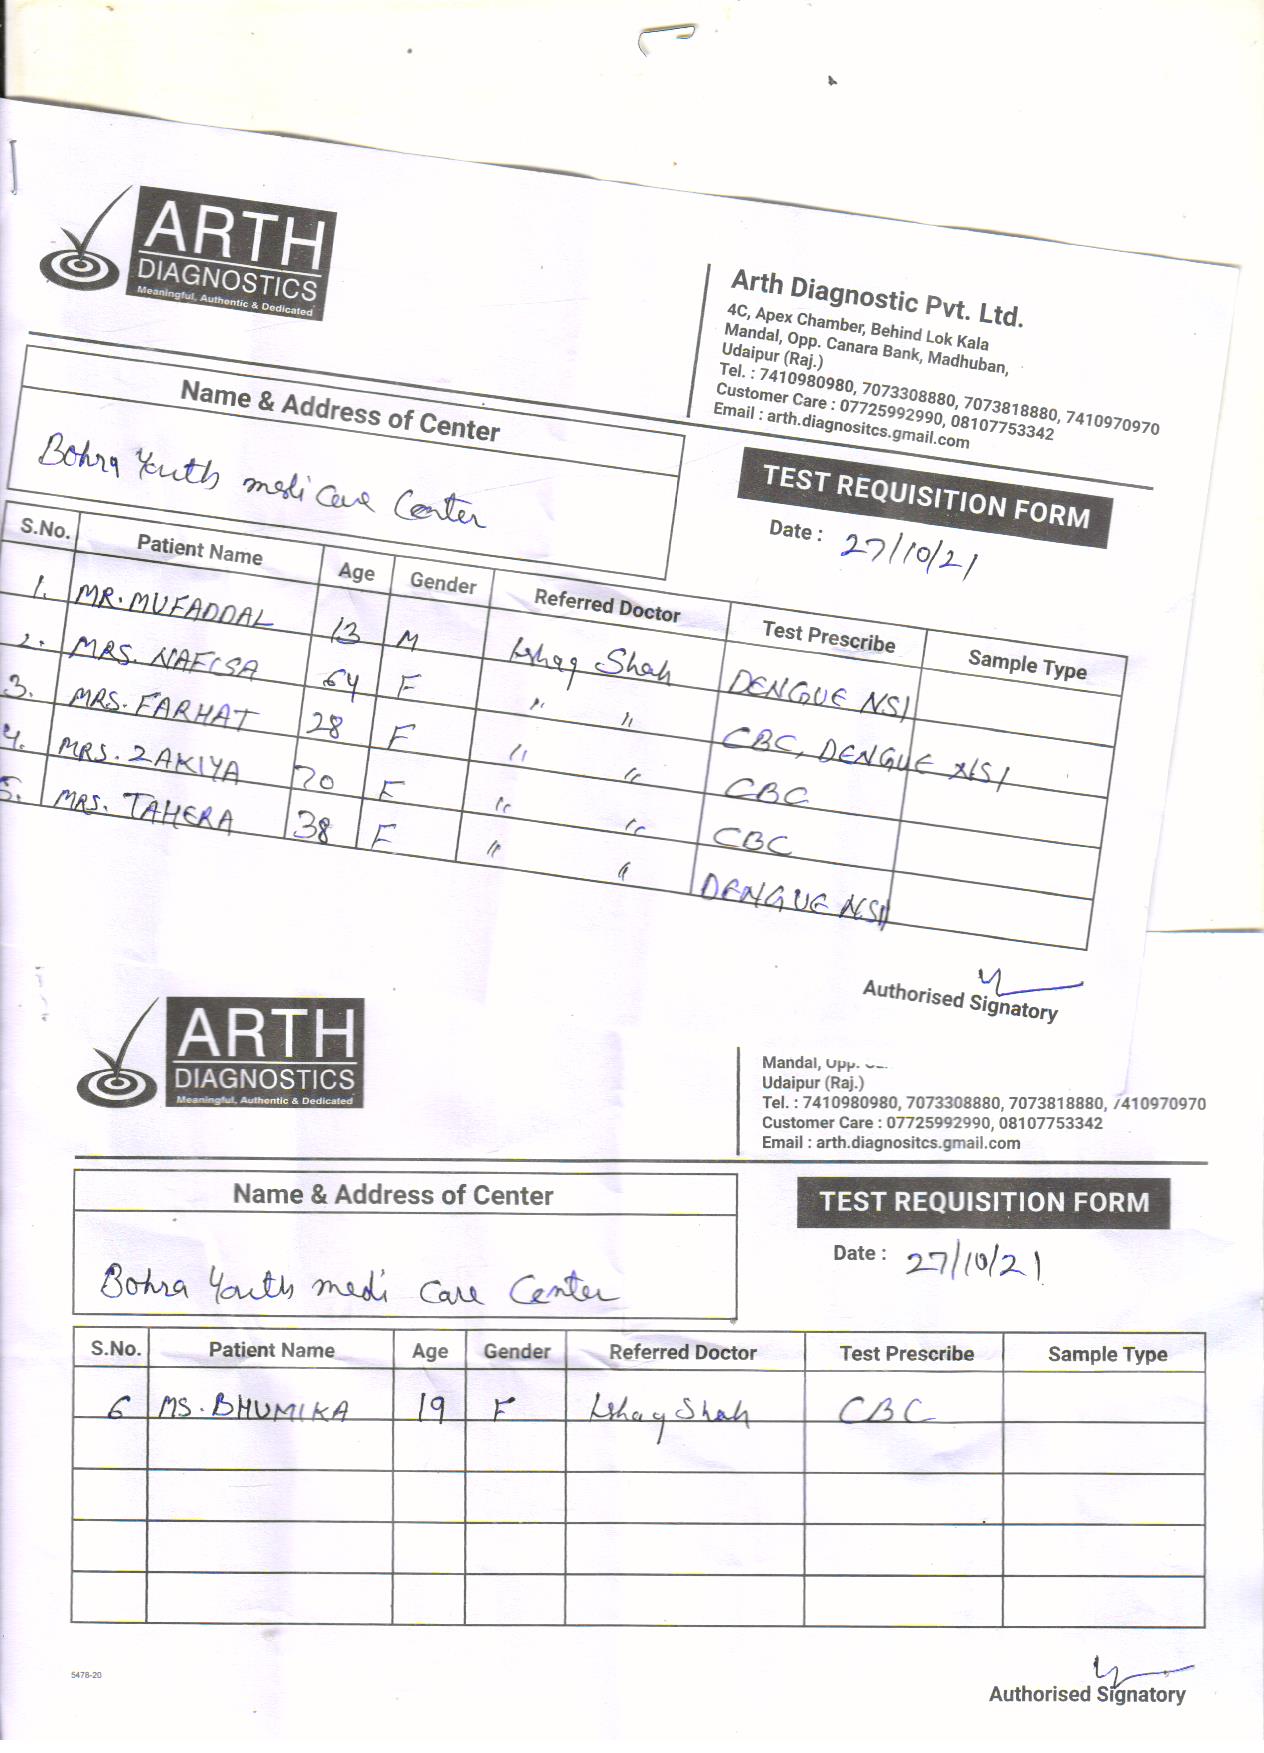 ARTH
DIAGNOSTICS
Meaningful, Authentic & Dedicated
Arth Diagnostic Pvt. Ltd.
4C, Apex Chamber, Behind Lok Kala
Mandal, Opp. Canara Bank, Madhuban,
Udaipur (Raj.)
Tel. : 7410980980, 7073308880, 7073818880, 7410970970
Customer Care : 07725992990, 08107753342
Email : arth.diagnositcs.gmail.com
Name & Address of Center
Bohra Youth medi Care Center
TEST REQUISITION FORM
Date : 27/10/21
S.No. Patient Name Age Gender Referred Doctor Test Prescribe Sample Type
1. MR. MUFADDAL 13 M Ishaq Shah DENGUE NS1
2. MRS. NAFISA 64 F " " CBC, DENGUE NS1
3. MRS. FARHAT 28 F " " CBC
4. MRS. ZAKIYA 70 F " " CBC
5. MRS. TAHERA 38 F " " DENGUE NS1
Authorised Signatory
ARTH
DIAGNOSTICS
Meaningful, Authentic & Dedicated
Mandal, Opp.
Udaipur (Raj.)
Tel. : 7410980980, 7073308880, 7073818880, 7410970970
Customer Care : 07725992990, 08107753342
Email : arth.diagnositcs.gmail.com
Name & Address of Center
Bohra Youth medi Care Center
TEST REQUISITION FORM
Date : 27/10/21
S.No. Patient Name Age Gender Referred Doctor Test Prescribe Sample Type
6 MS. BHUMIKA 19 F Ishaq Shah CBC
5478-20
Authorised Signatory